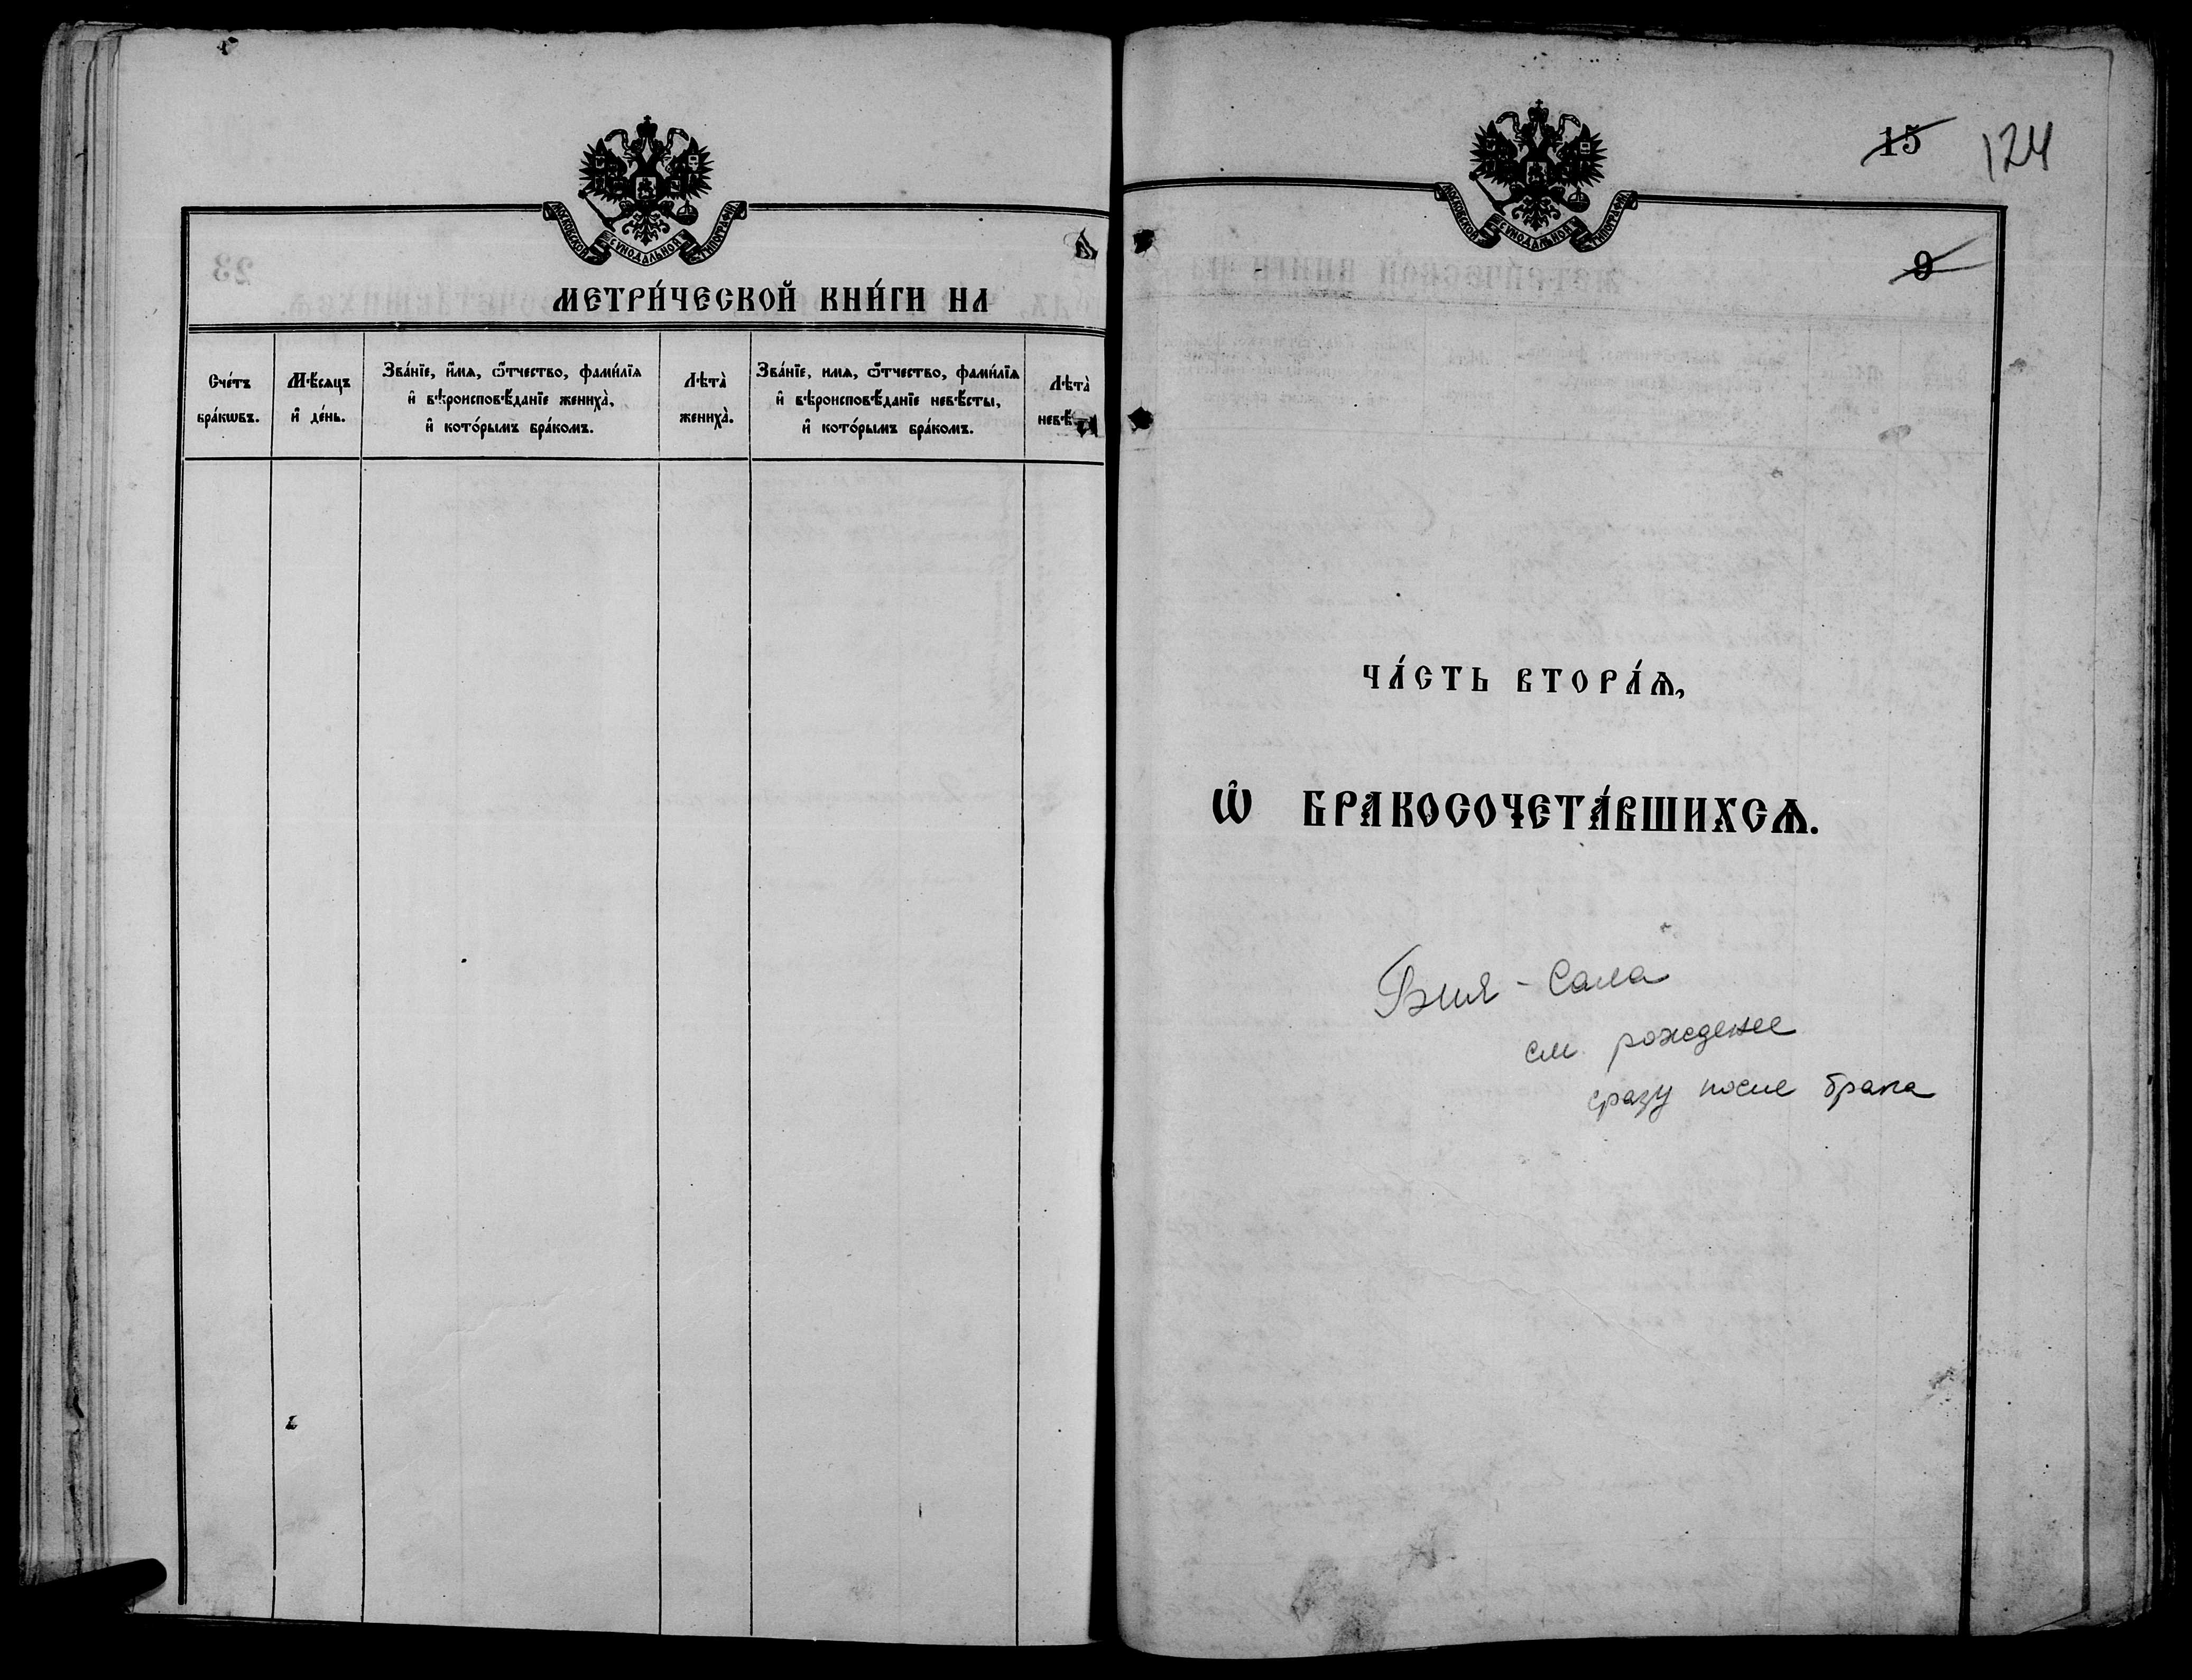 МОСКОВСКОЙ СУНОДАЛЬНОЙ ТИПОГРАФІИ
МЕТРИ́ЧЕСКОЙ КНИ́ГИ НА
Сче́тъ
бра́кѡвъ.
Мѣ́сяцъ
и҆ де́нь.
Зва́нїе, и҆́мѧ, ѻ҆́тчество, фами́лїѧ
и҆ вѣроисповѣ́данїе женихà,
и҆ кото́рымъ бра́комъ.
Лѣтà
женихà.
Зва́нїе, имѧ, ѻ҆́тчество, фами́лїѧ
и҆ вѣроисповѣ́данїе невѣ́сты,
и҆ кото́рымъ бра́комъ.
Лѣтà
невѣ́
МОСКОВСКОЙ СУНОДАЛЬНОЙ ТИПОГРАФІИ
15 124
9
ЧА́СТЬ ВТОРА́Ѧ,
Ѡ҆ БРАКОСОЧЕТА́ВШИХСѦ.
Бия - Сала
см. рождение
сразу после брака